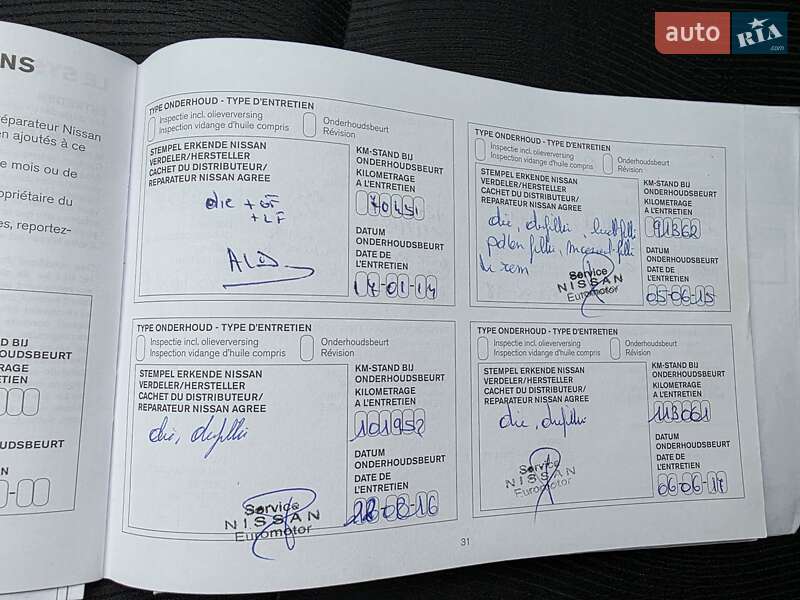 auto RIA.com
NS
éparateur Nissan
en ajoutés à ce
e mois ou de
opriétaire du
es, reportez-
D BIJ
OUDSBEURT
TRAGE
TIEN
UDSBEURT
N
TYPE ONDERHOUD - TYPE D'ENTRETIEN
Inspectie incl. olieverversing
Inspection vidange d'huile compris
Onderhoudsbeurt
Révision
STEMPEL ERKENDE NISSAN
VERDELER/HERSTELLER
CACHET DU DISTRIBUTEUR/
REPARATEUR NISSAN AGREE
olie + OF
+ LF
KM-STAND BIJ
ONDERHOUDSBEURT
KILOMETRAGE
A L'ENTRETIEN
70451
DATUM
ONDERHOUDSBEURT
DATE DE
L'ENTRETIEN
17-01-14
TYPE ONDERHOUD - TYPE D'ENTRETIEN
Inspectie incl. olieverversing
Inspection vidange d'huile compris
Onderhoudsbeurt
Révision
STEMPEL ERKENDE NISSAN
VERDELER/HERSTELLER
CACHET DU DISTRIBUTEUR/
REPARATEUR NISSAN AGREE
Service
NISSAN
Euromotor
KM-STAND BIJ
ONDERHOUDSBEURT
KILOMETRAGE
A L'ENTRETIEN
91362
DATUM
ONDERHOUDSBEURT
DATE DE
L'ENTRETIEN
05-06-15
TYPE ONDERHOUD - TYPE D'ENTRETIEN
Inspectie incl. olieverversing
Inspection vidange d'huile compris
Onderhoudsbeurt
Révision
STEMPEL ERKENDE NISSAN
VERDELER/HERSTELLER
CACHET DU DISTRIBUTEUR/
REPARATEUR NISSAN AGREE
Service
NISSAN
Euromotor
KM-STAND BIJ
ONDERHOUDSBEURT
KILOMETRAGE
A L'ENTRETIEN
101952
DATUM
ONDERHOUDSBEURT
DATE DE
L'ENTRETIEN
TYPE ONDERHOUD - TYPE D'ENTRETIEN
Inspectie incl. olieverversing
Inspection vidange d'huile compris
Onderhoudsbeurt
Révision
STEMPEL ERKENDE NISSAN
VERDELER/HERSTELLER
CACHET DU DISTRIBUTEUR/
REPARATEUR NISSAN AGREE
Service
NISSAN
Euromotor
KM-STAND BIJ
ONDERHOUDSBEURT
KILOMETRAGE
A L'ENTRETIEN
113061
DATUM
ONDERHOUDSBEURT
DATE DE
L'ENTRETIEN
06-06-17
31